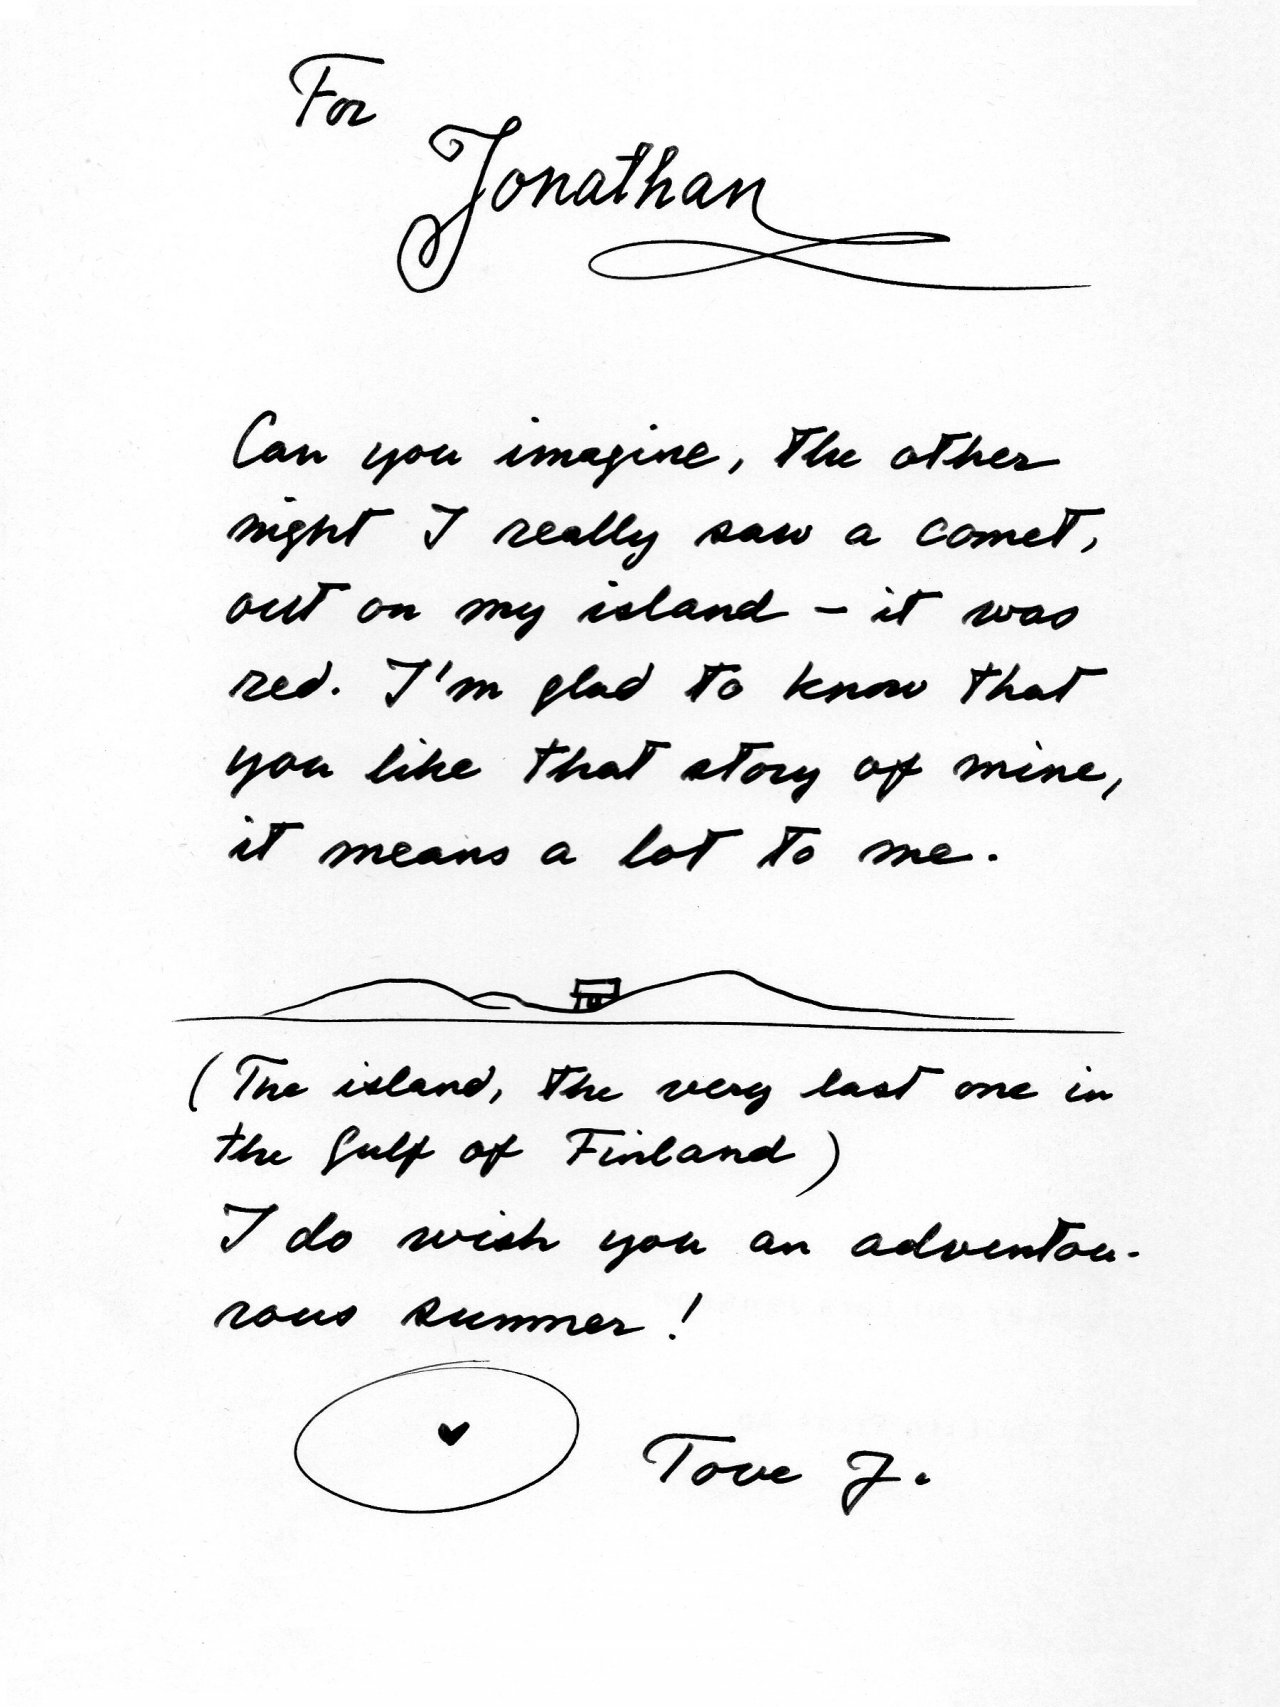 For
Jonathan
Can you imagine, the other
night I really saw a comet,
out on my island – it was
red. I'm glad to know that
you like that story of mine,
it means a lot to me.
(The island, the very last one in
the Gulf of Finland)
I do wish you an adventou-
rous summer!
Tove J.